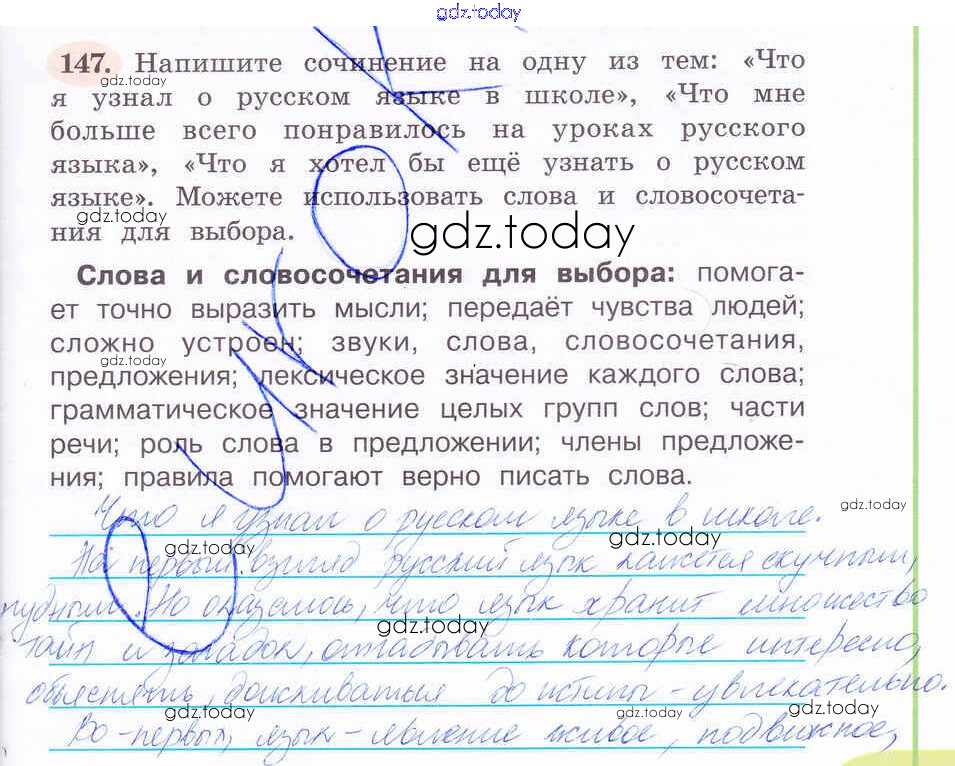 gdz.today
147. Напишите сочинение на одну из тем: «Что
gdz.today
я узнал о русском языке в школе», «Что мне
больше всего понравилось на уроках русского
языка», «Что я хотел бы ещё узнать о русском
языке». Можете использовать слова и словосочета-
gdz.today
ния для выбора.
gdz.today
Слова и словосочетания для выбора: помога-
ет точно выразить мысли; передаёт чувства людей;
сложно устроен; звуки, слова, словосочетания,
gdz.today
предложения; лексическое значение каждого слова;
грамматическое значение целых групп слов; части
речи; роль слова в предложении; члены предложе-
ния; правила помогают верно писать слова.
Что я узнал о русском языке в школе.
gdz.today
gdz.today
На первый взгляд русский язык кажется скучным,
нудным. Но оказалось, что язык хранит множество
gdz.today
тайн и загадок, отгадывать которые интересно,
объяснять, доискиваться до истины - увлекательно.
gdz.today
gdz.today
gdz.today
Во-первых, язык - явление живое, подвижное,